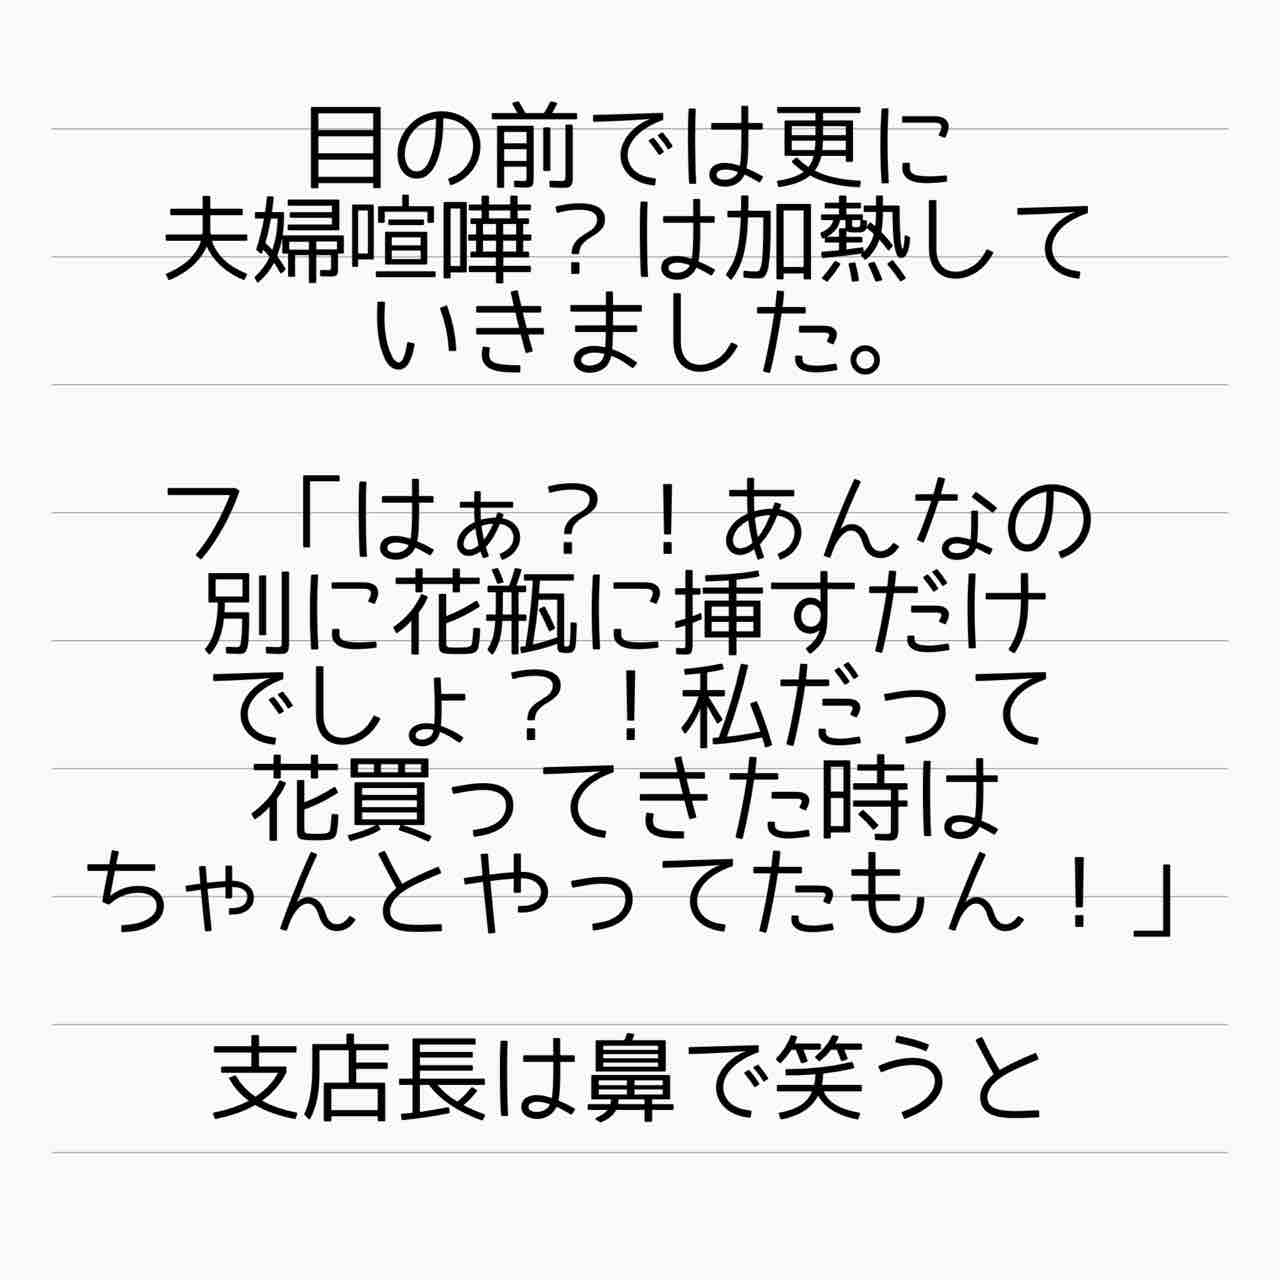 目の前では更に
夫婦喧嘩？は加熱して
いきました。
フ「はぁ？！あんなの
別に花瓶に挿すだけ
でしょ？！私だって
花買ってきた時は
ちゃんとやってたもん！」
支店長は鼻で笑うと